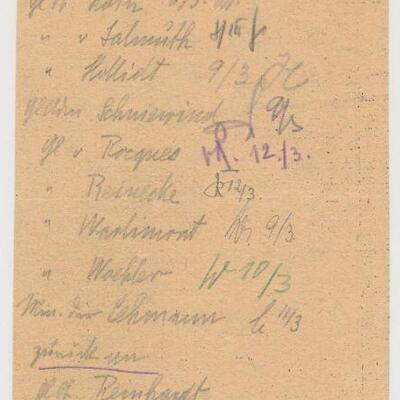 " v Salmuth
" Hollidt 9/3
GlAdm Schniewind 9/3
Gl v Rocques 12./3.
" Reinecke 12/3.
" Warlimont 9/3.
" Woehler W 10/3
Min. dir Lehmann L 11/3
zurück an
Reinhardt